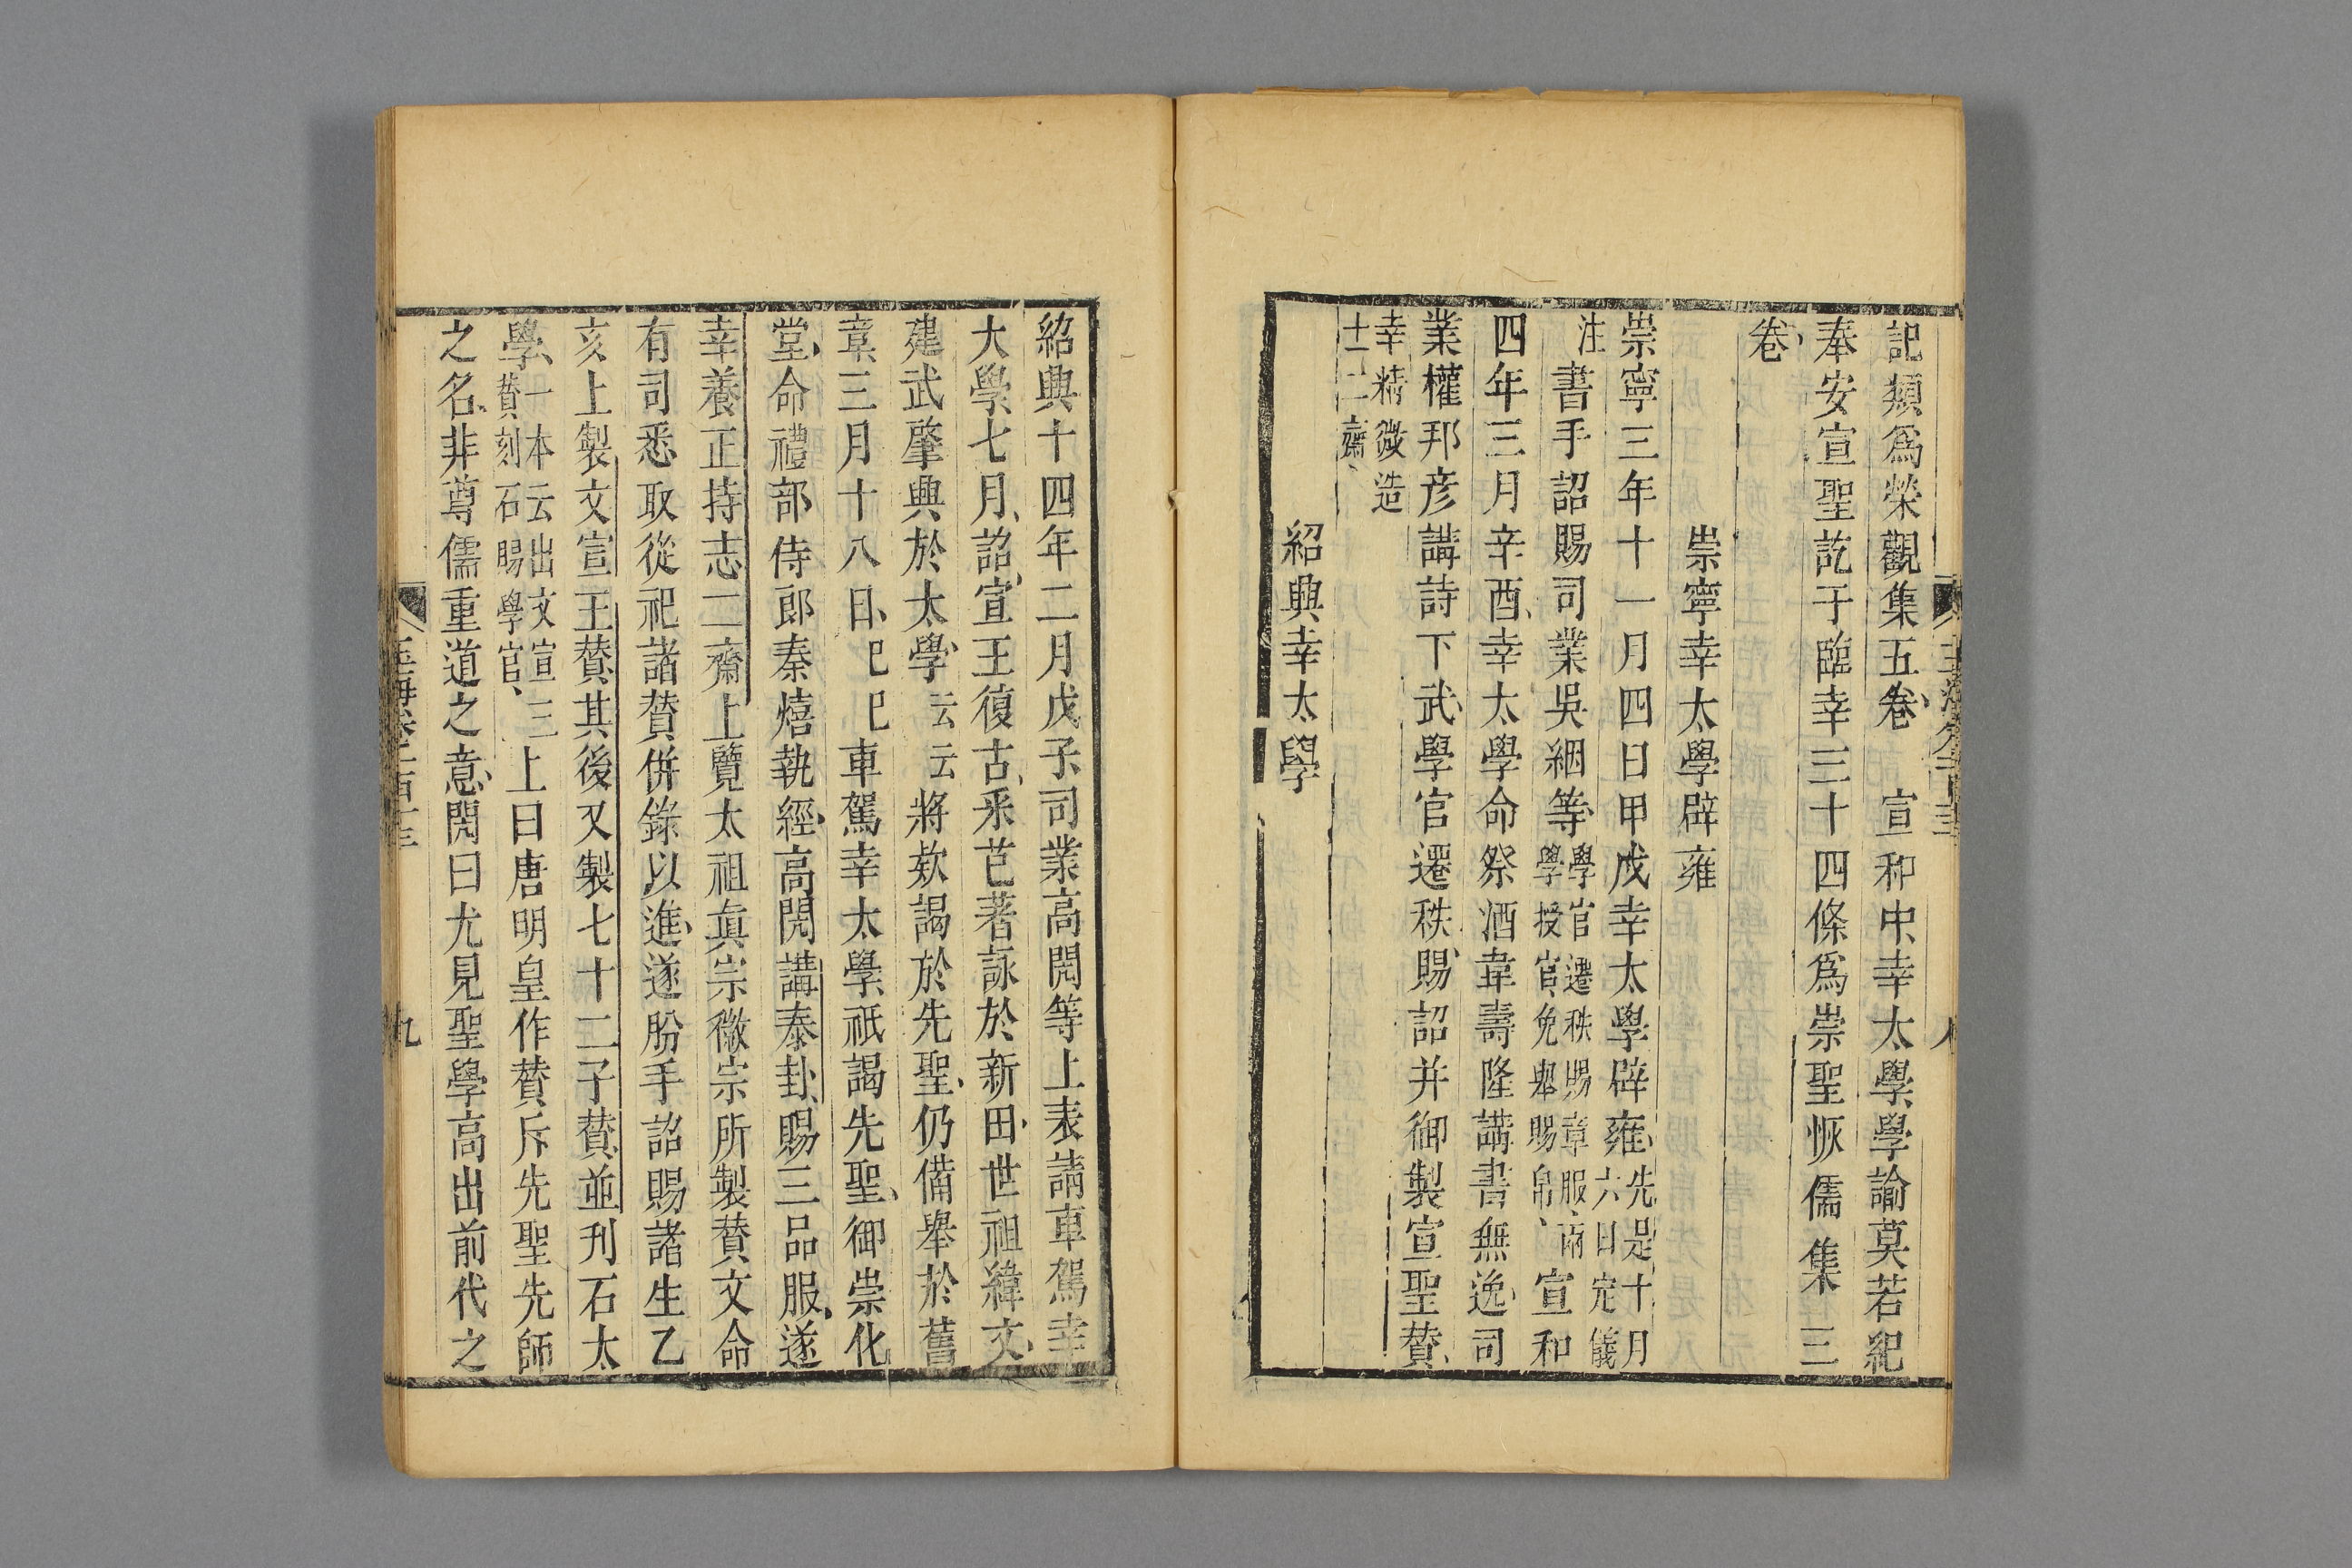 記類爲榮觀集五卷　宣和中幸太學學諭莫若紀
奉安宣聖訖于臨幸三十四條爲崇聖恢儒集三
卷
崇寧幸太學辟雍
崇寧三年十一月四日甲戌幸太學辟雍先是十月六日定儀
注書手詔賜司業吳絪等學官遷秩賜章服兩學授官免舉賜帛宣和
四年三月辛酉幸太學命祭酒韋壽隆講書無逸司
業權邦彦講詩下武學官遷秩賜詔并御製宣聖贊
幸精微造士二齋
紹興幸太學
紹興十四年二月戊子司業高閌等上表請車駕幸
大學七月詔宣王復古采芑著詠於新田世祖緯文
建武肇興於太學云云將欵謁於先聖仍備舉於舊
章三月十八日己巳車駕幸太學祇謁先聖御崇化
堂命禮部侍郎秦熺執經高閌講泰卦賜三品服遂
幸養正持志二齋上覽太祖真宗徽宗所製贊文命
有司悉取從祀諸贊併錄以進遂肦手詔賜諸生乙
亥上製文宣王贊其後又製七十二子贊並刋石太
學一本云出文宣三贊刻石賜學官上曰唐明皇作贊斥先聖先師
之名非尊儒重道之意閌曰尤見聖學高出前代之
九